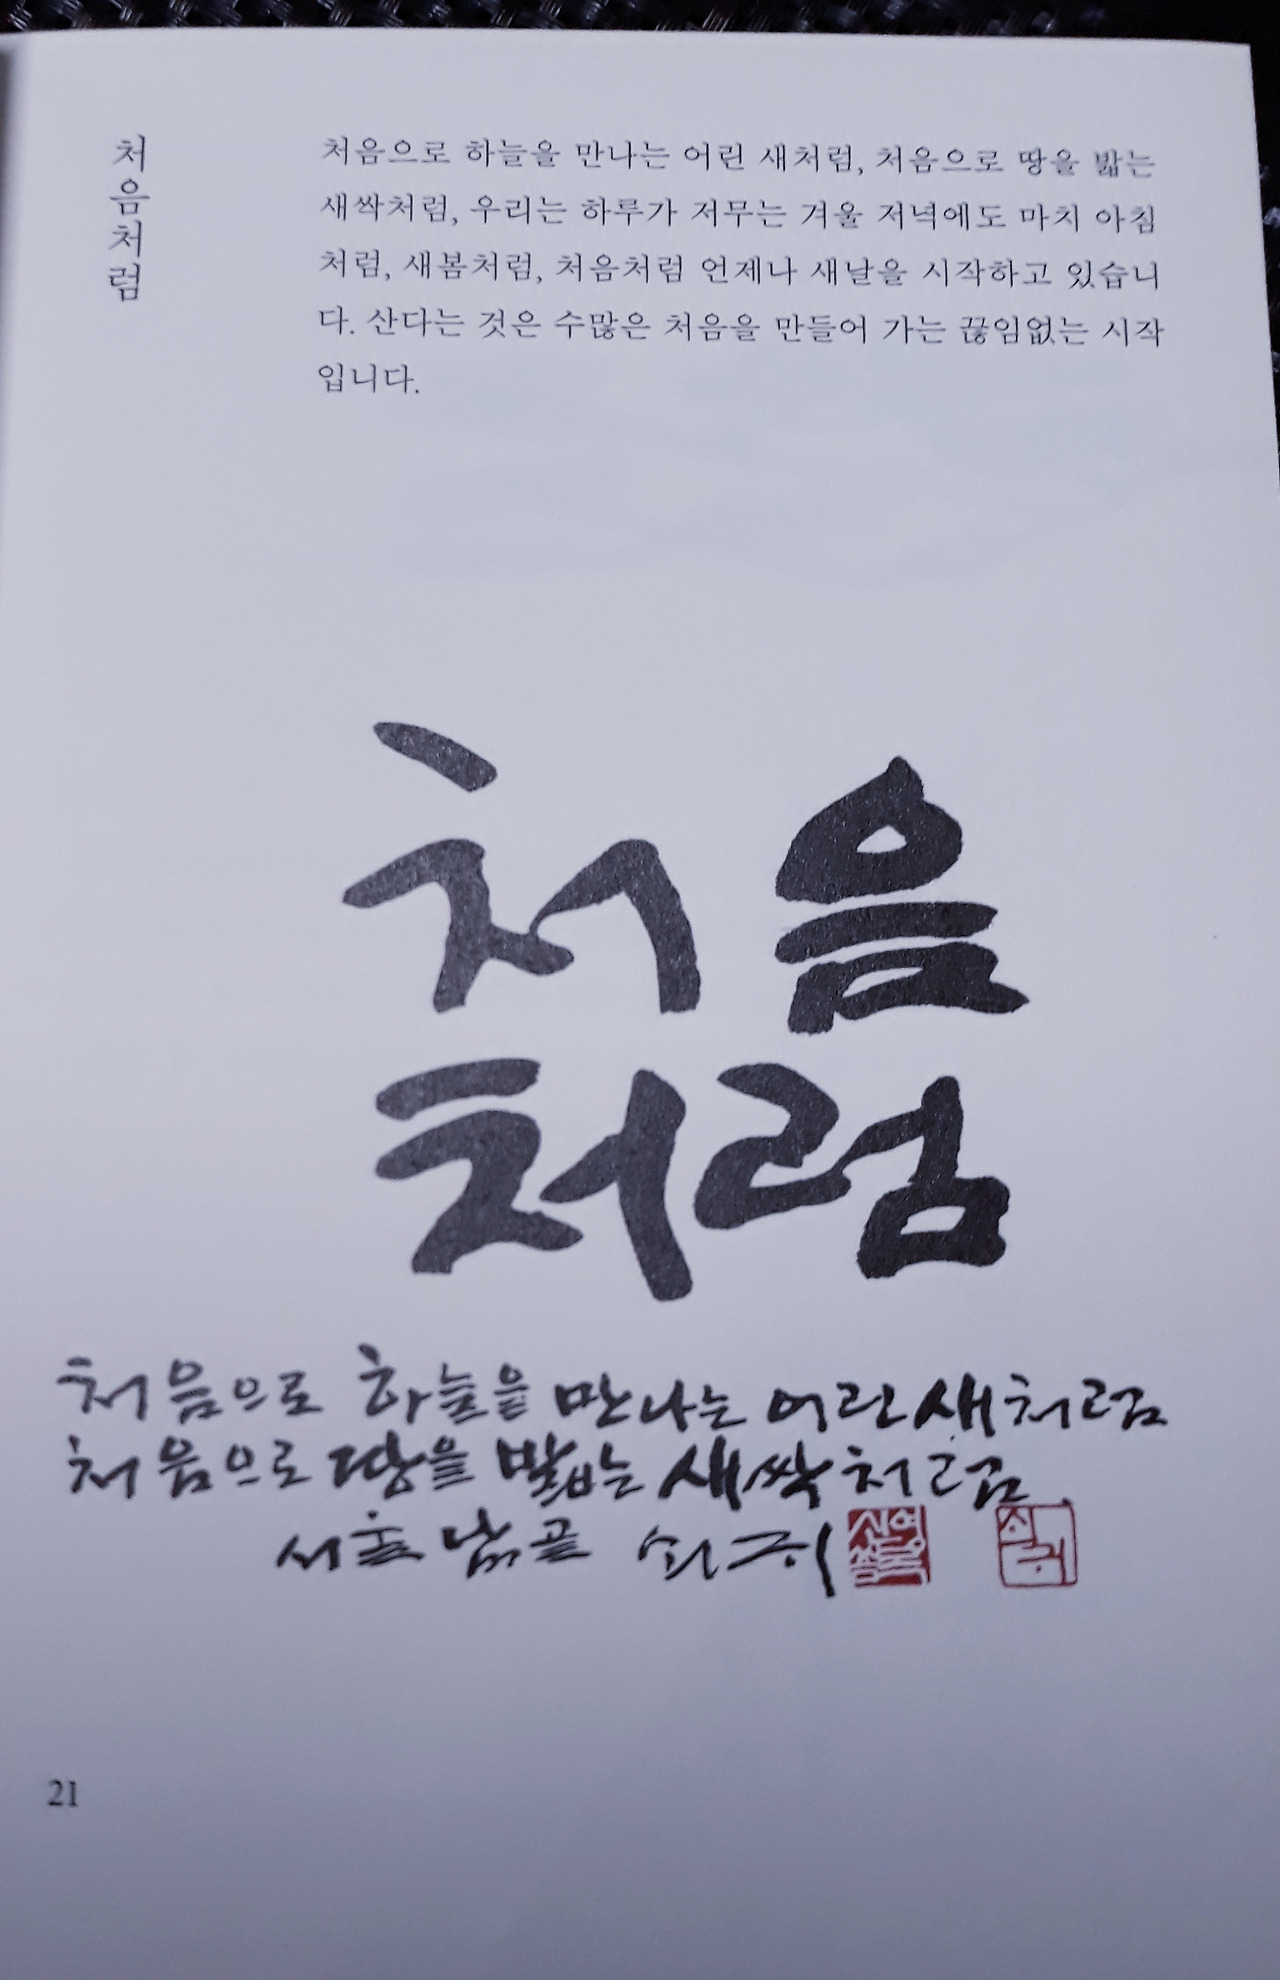 처음처럼
처음으로 하늘을 만나는 어린 새처럼, 처음으로 땅을 밟는
새싹처럼, 우리는 하루가 저무는 겨울 저녁에도 마치 아침
처럼, 새봄처럼, 처음처럼 언제나 새날을 시작하고 있습니
다. 산다는 것은 수많은 처음을 만들어 가는 끊임없는 시작
입니다.
처음
처럼
처음으로 하늘을 만나는 어린 새처럼
처음으로 땅을 밟는 새싹처럼
서울 남끝 쇠귀
신영
쇠귀
21